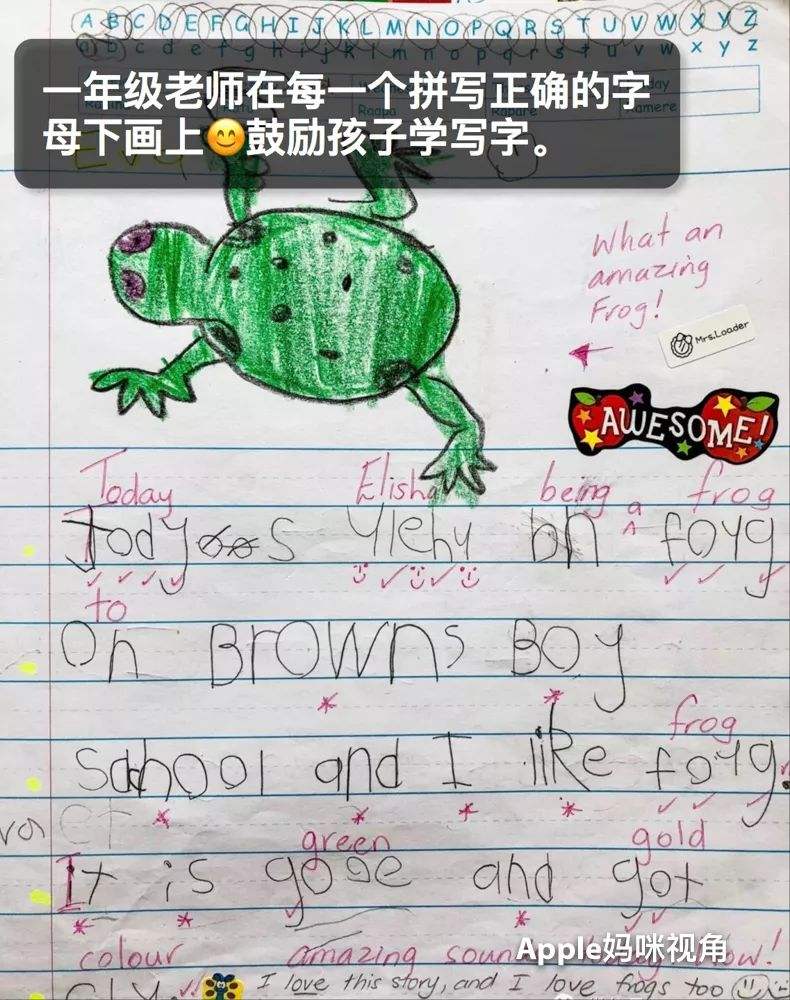 A B C D E F G H I J K L M N O P Q R S T U V W X Y Z
a b c d e f g h i j k l m n o p q r s t u v w x y z
一年级老师在每一个拼写正确的字
母下画上😊鼓励孩子学写字。
What an
amazing
Frog!
Mrs.Loader
AWESOME!
Today Elisha being a frog
Jody s ylehy bn foyg
to
On Browns Boy
frog
School and I like foyg.
green gold
It is gooe and got
colour amazing
Apple妈咪视角
I love this story, and I love frogs too